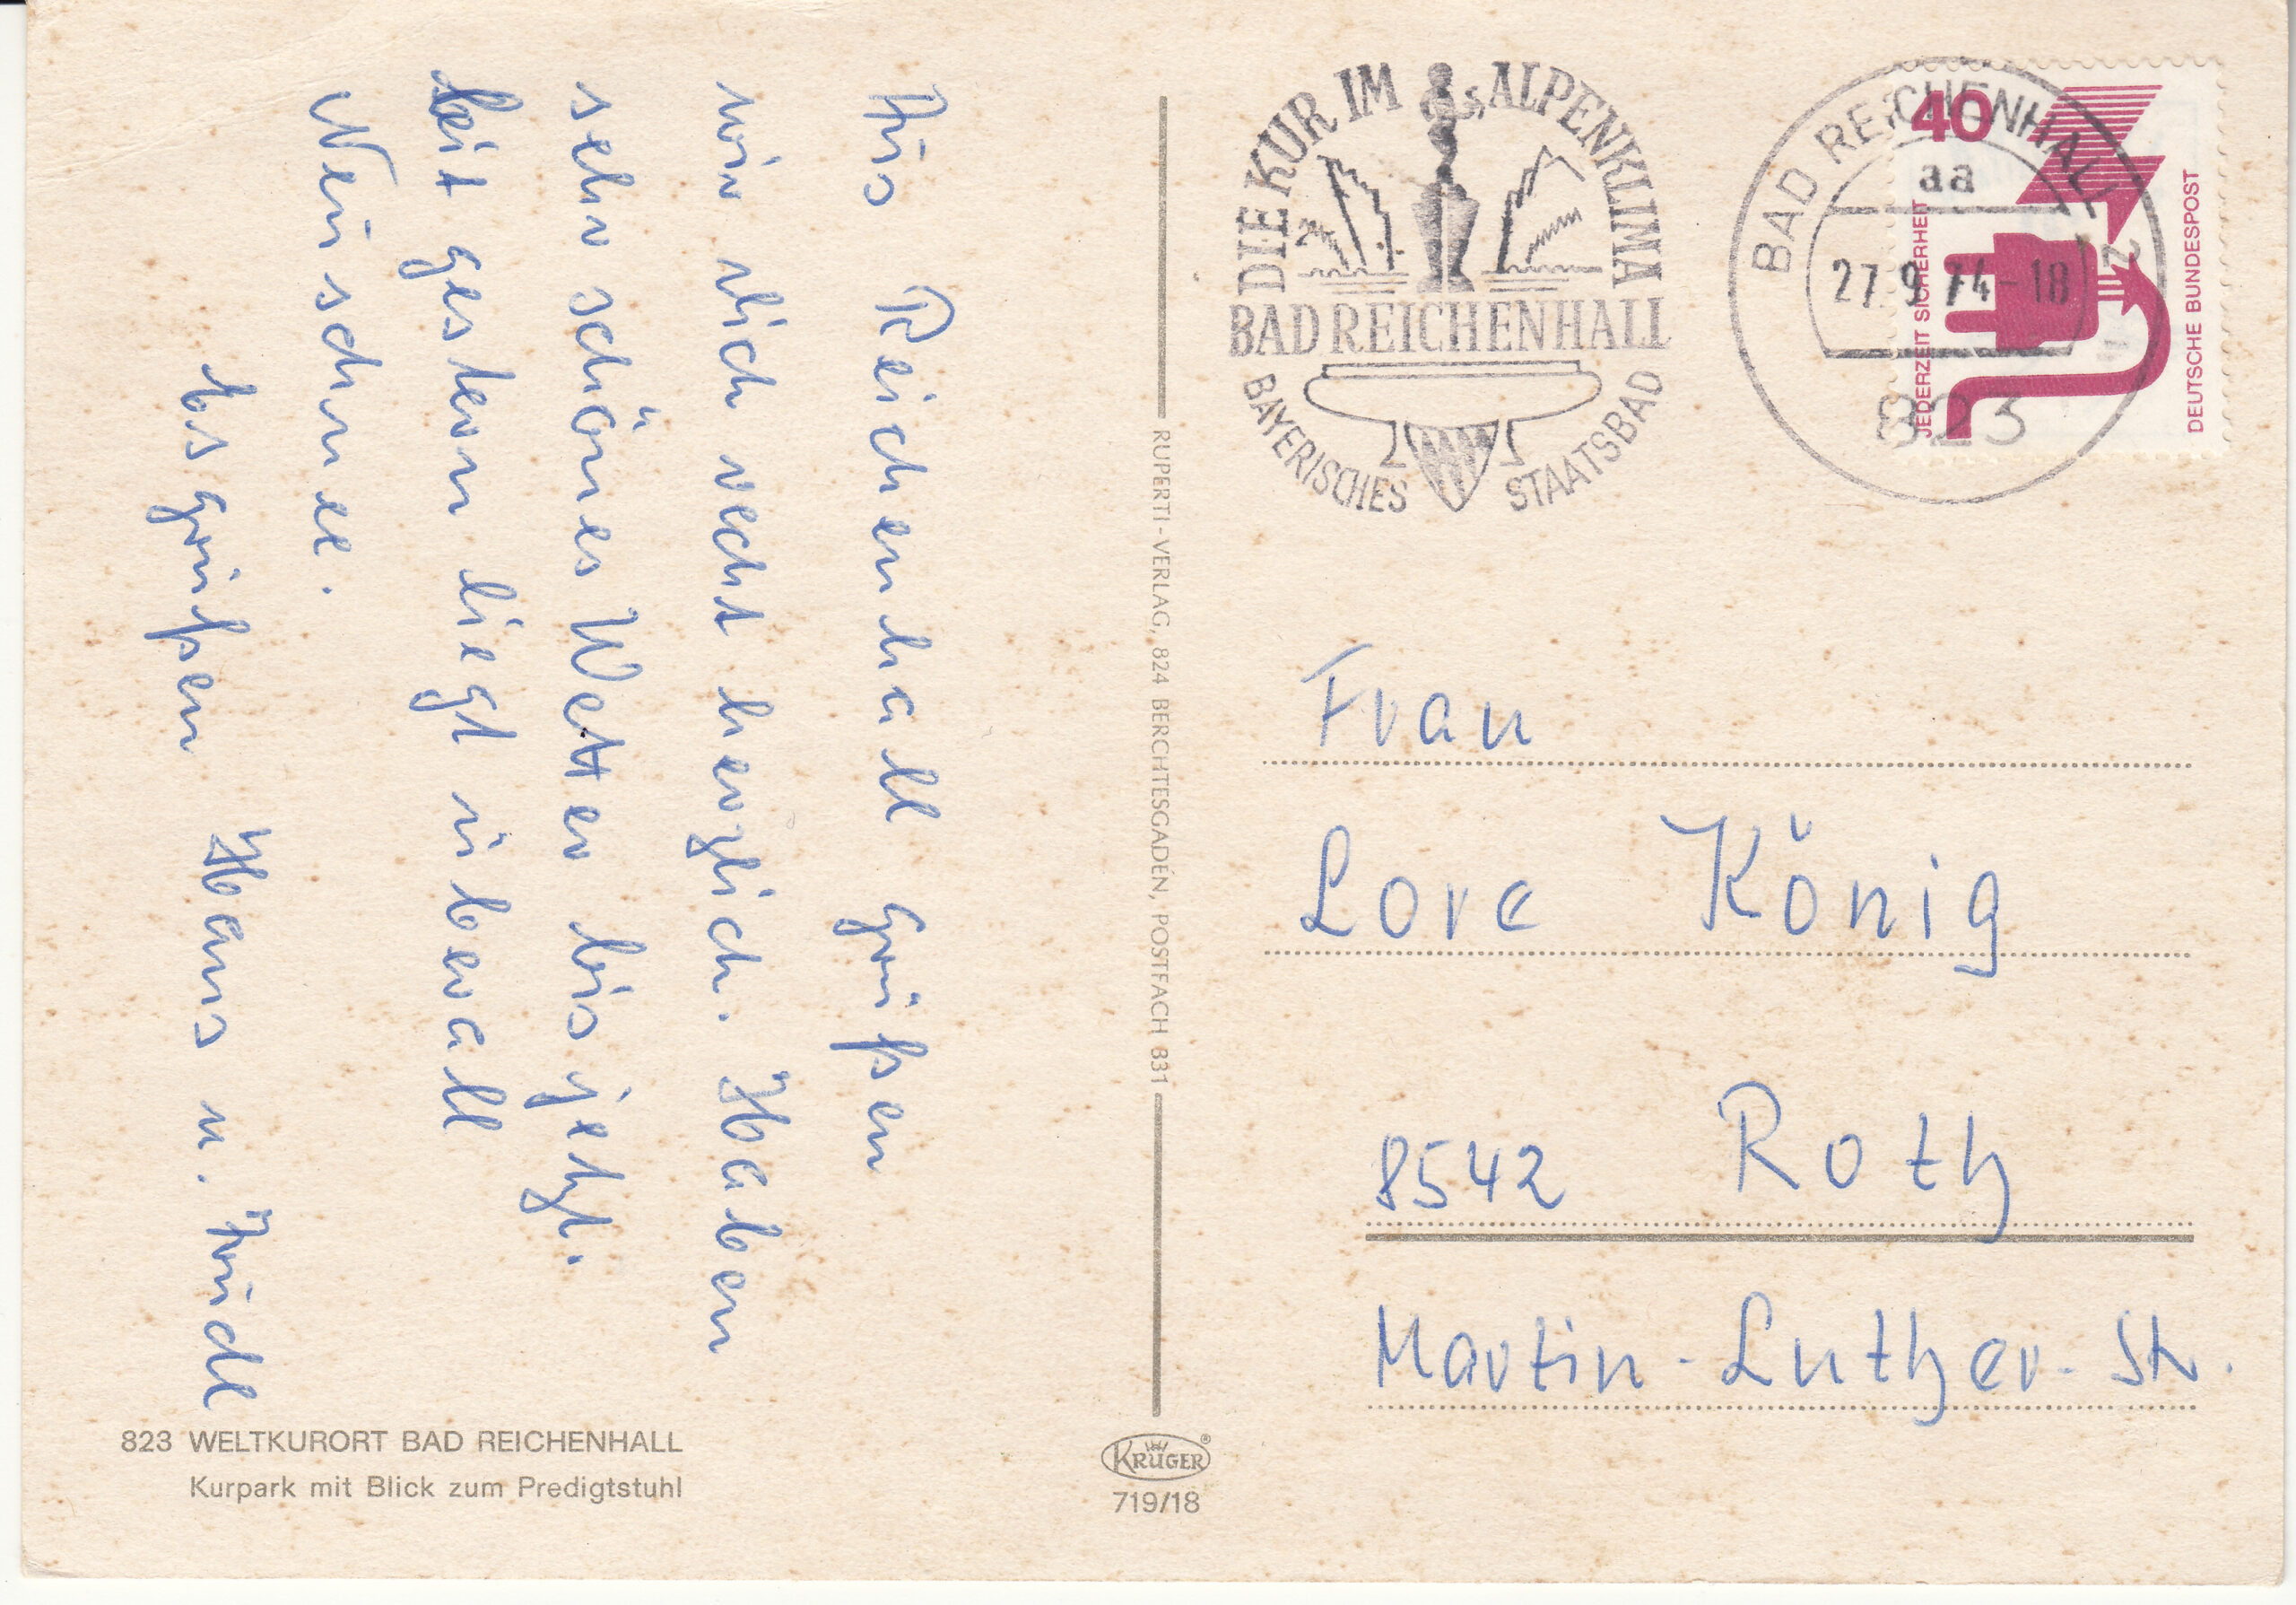 Aus Reichenhall grüßen
wir dich recht herzlich. Haben
sehr schönes Wetter bis jetzt.
Seit gestern liegt überall
Neuschnee.
Es grüßen Hans u.
DIE KUR IM ALPENKLIMA
BAD REICHENHALL
BAYERISCHES STAATSBAD
BAD REICHENHALL
aa
27.9.74-18
823
40
JEDERZEIT SICHERHEIT
DEUTSCHE BUNDESPOST
RUPERTI-VERLAG, 824 BERCHTESGADEN, POSTFACH 831
Frau
Lore König
8542 Roth
Martin-Luther-Str.
823 WELTKURORT BAD REICHENHALL
Kurpark mit Blick zum Predigtstuhl
KRÜGER®
719/18